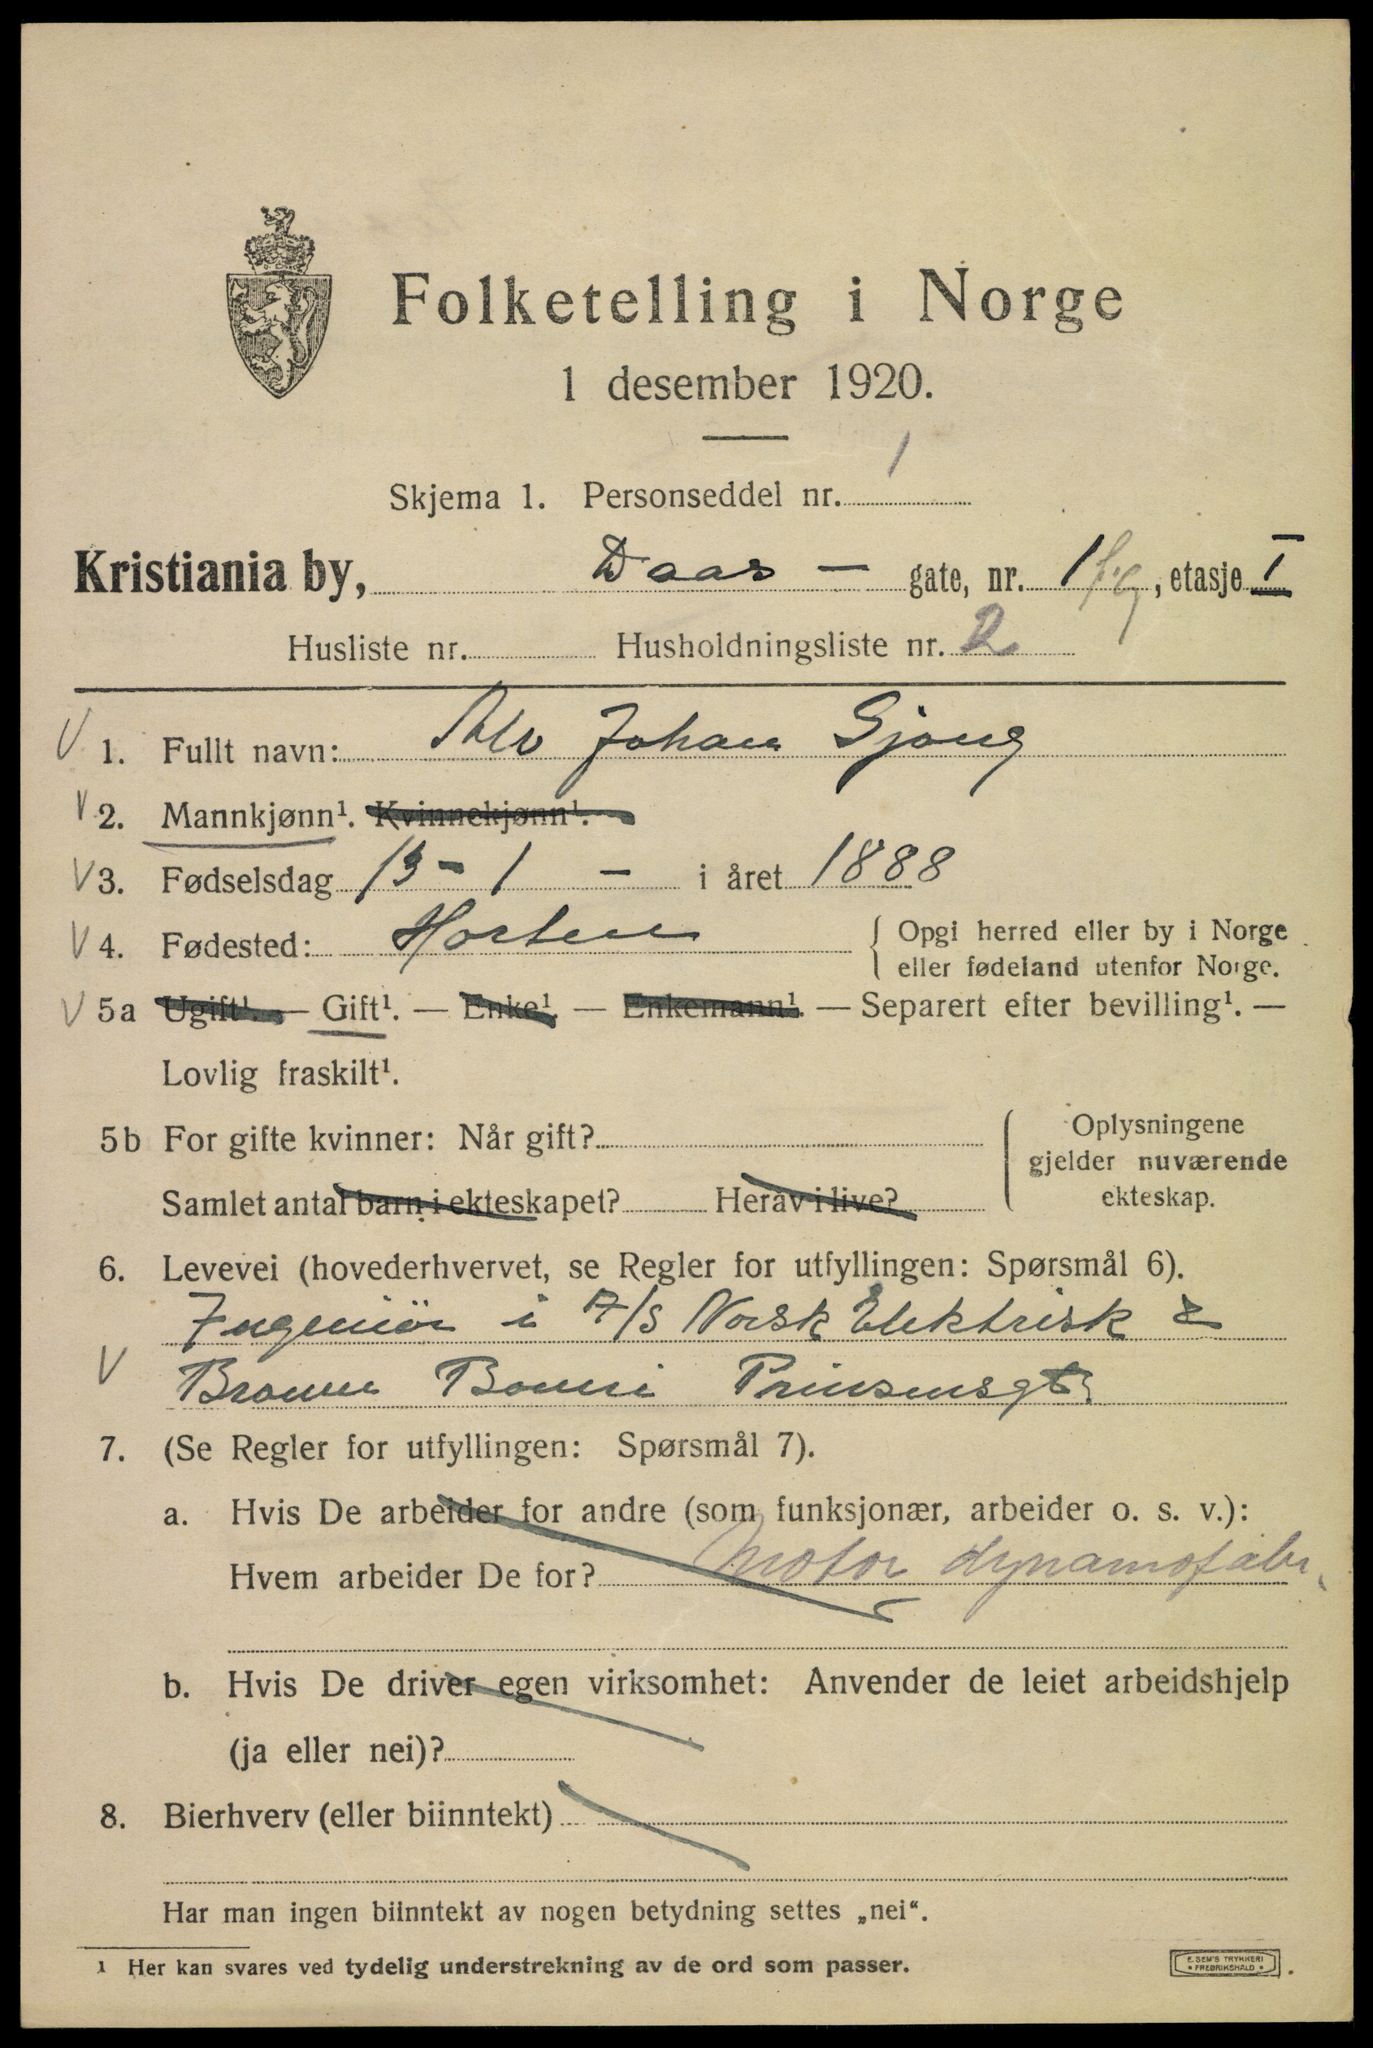 Folketelling i Norge
1 desember 1920.
Skjema 1. Personseddel nr. 1
Kristiania by, Daas — gate, nr. 1, etasje I
Husliste nr. Husholdningsliste nr. 2
V 1. Fullt navn: Alv Johan Gjong
V 2. Mannkjønn¹. Kvinnekjønn¹.
V 3. Fødselsdag 13 - 1 - i året 1888
V 4. Fødested: Horten { Opgi herred eller by i Norge
eller fødeland utenfor Norge.
V 5a Ugift¹. — Gift¹. — Enke¹. — Enkemann¹. — Separert efter bevilling¹. —
Lovlig fraskilt¹.
5b For gifte kvinner: Når gift? { Oplysningene
gjelder nuværende
Samlet antal barn i ekteskapet? Herav i live? ekteskap.
6. Levevei (hovederhvervet, se Regler for utfyllingen: Spørsmål 6).
Ingeniör i A/S Norsk Elektrisk &
V Brown Boveri Prinsensgt
7. (Se Regler for utfyllingen: Spørsmål 7).
a. Hvis De arbeider for andre (som funksjonær, arbeider o. s. v.):
Hvem arbeider De for? Motor dynamofabr.
b. Hvis De driver egen virksomhet: Anvender de leiet arbeidshjelp
(ja eller nei)?
8. Bierhverv (eller biinntekt)
Har man ingen biinntekt av nogen betydning settes „nei“.
1 Her kan svares ved tydelig understrekning av de ord som passer.
E. SEM'S TRYKKERI
• FREDRIKSHALD •